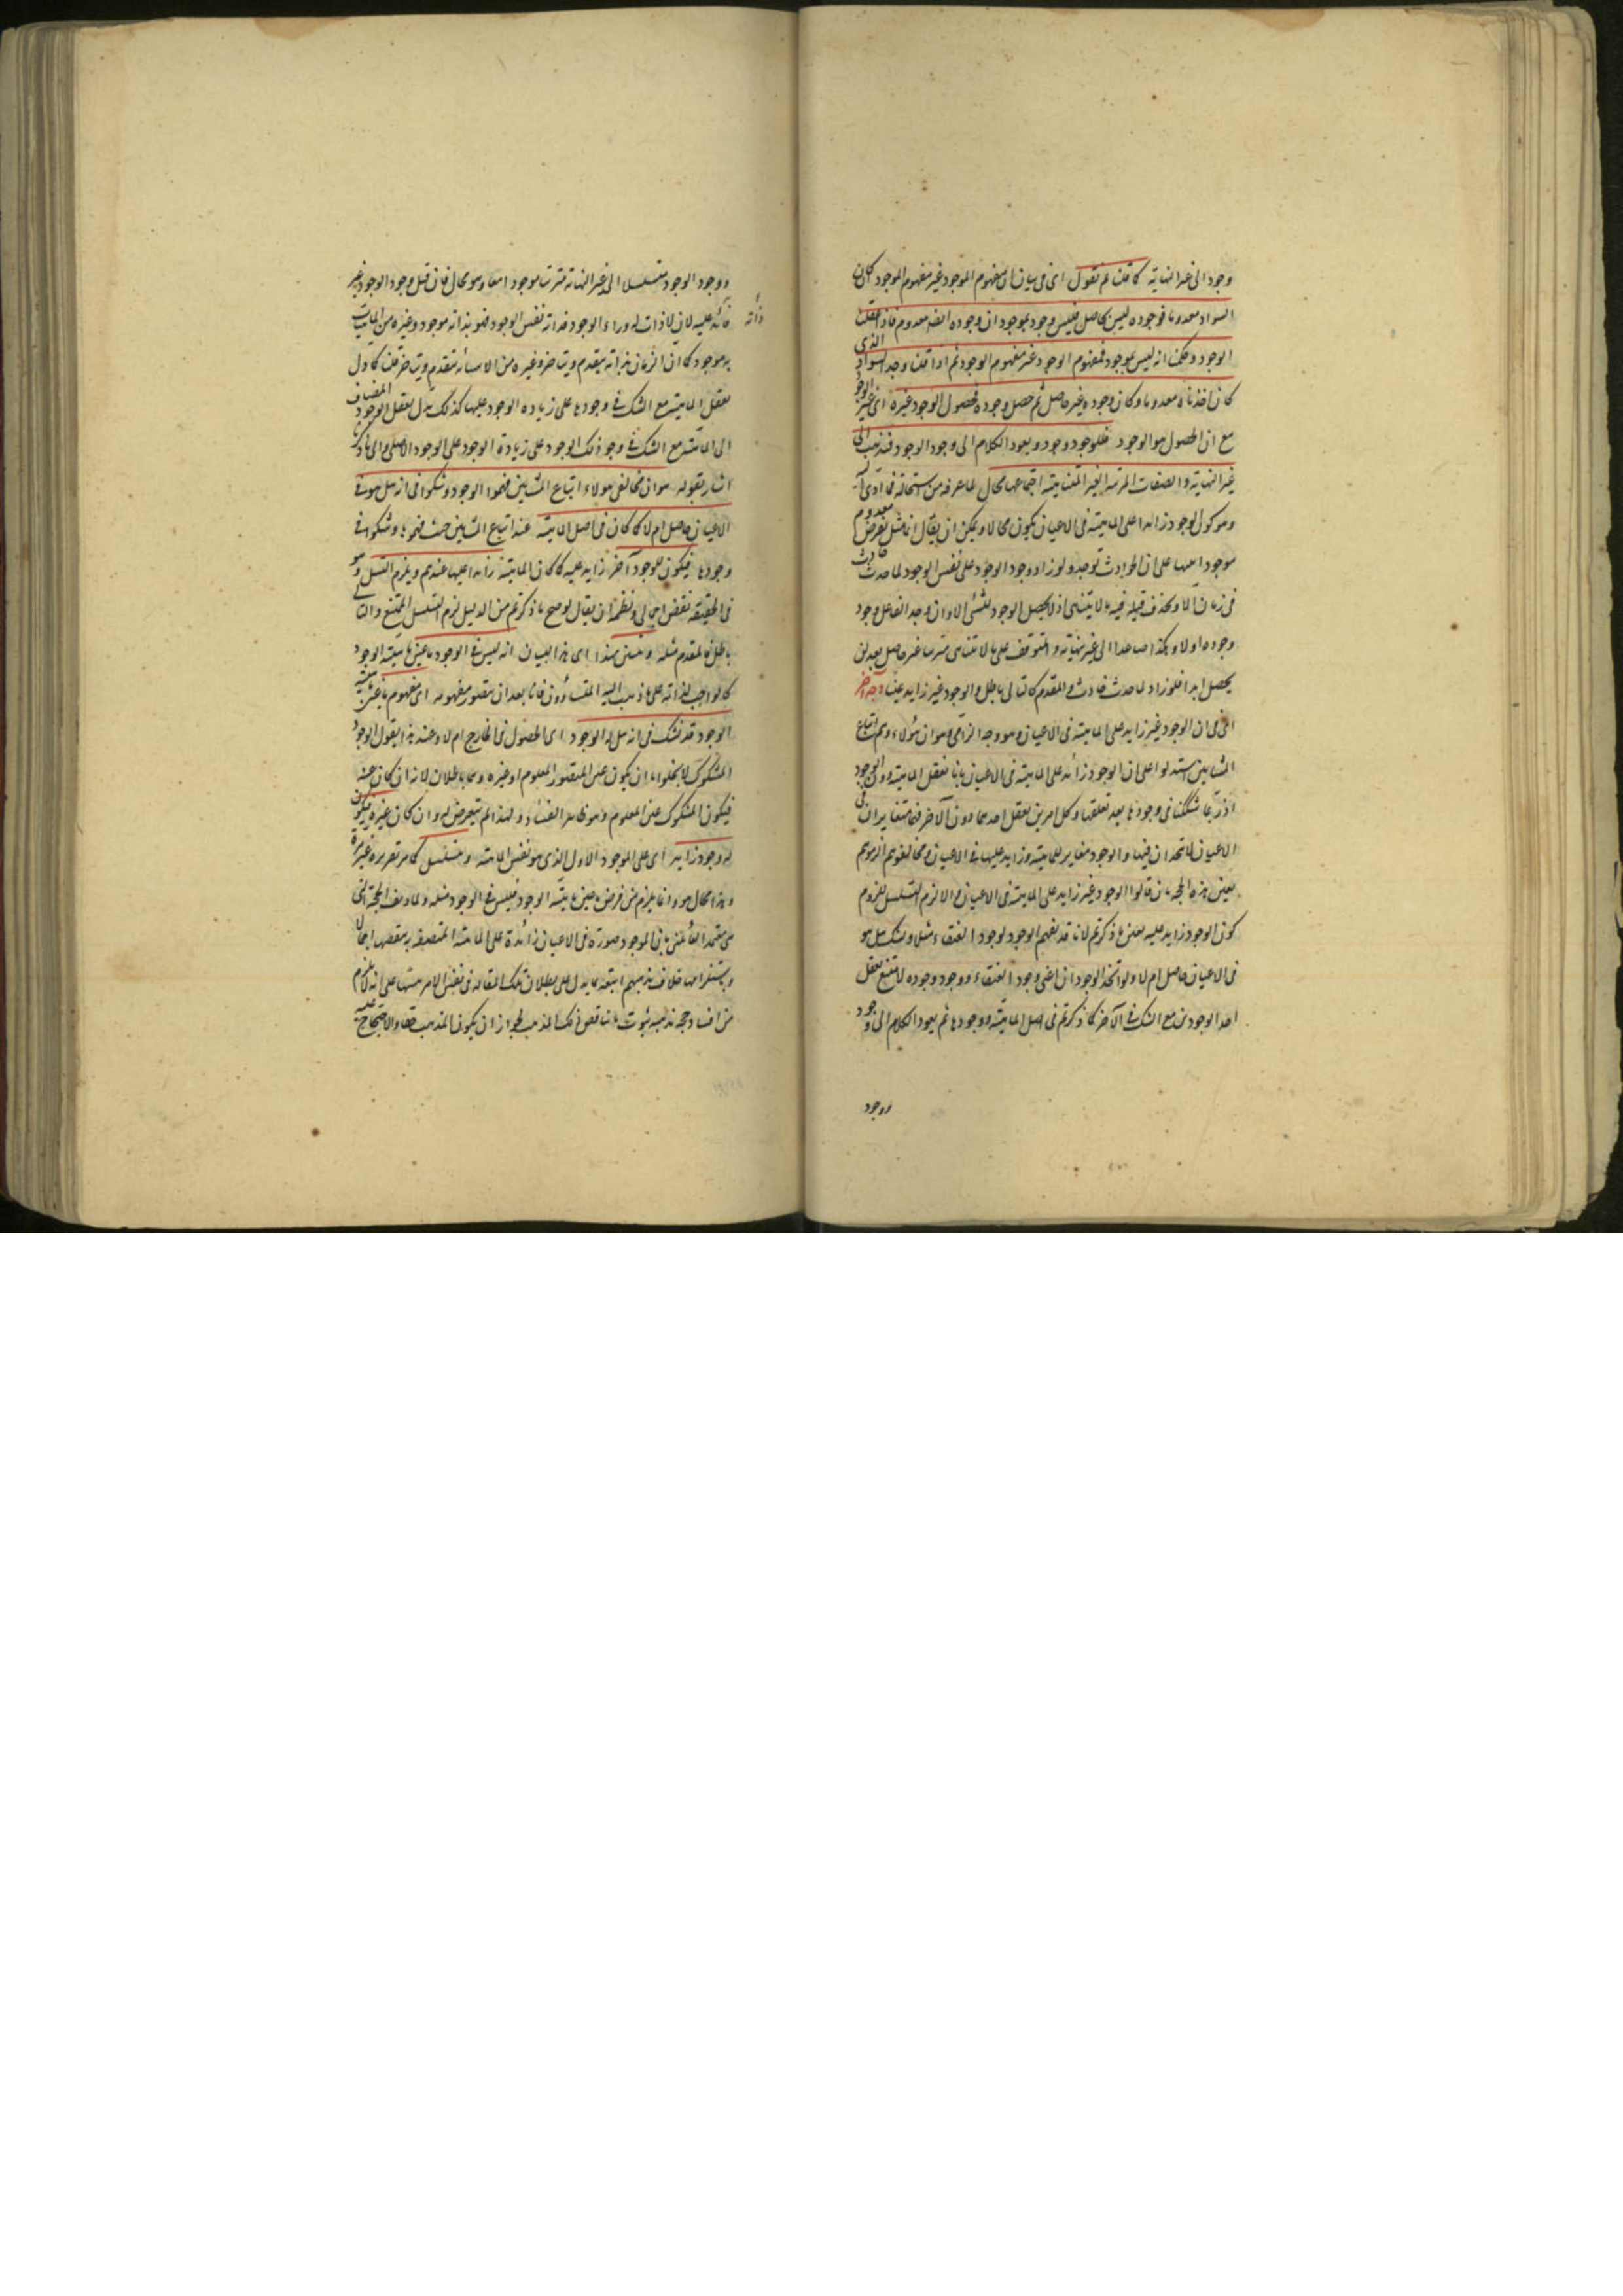 وجود الى غير النهاية كما قلنا ثم نقول اى فى بيان ان مفهوم الموجود غير مفهوم الوجود كان
السواد معدوما فوجوده ليس بحاصل فليس وجوده بموجود ان وجوده ايضا معدوم فاذا عقلنا
الوجود وحكمنا انه ليس بموجود فمفهوم الوجود غير مفهوم الموجود ثم اذا قلنا وجد السواد الذى
كان اخذناه معدوما وكان وجوده غير حاصل ثم حصل وجوده فحصول الوجود غيره اى غير الوجود
مع ان الحصول هو الوجود فللوجود وجود ويعود الكلام الى وجود الوجود فيذهب الى
غير النهاية والصفات المرتبة الغير المتناهية اجتماعها محال لما عرفته من استحالته فما ادى اليه
وهو كون الوجود زائدا على الماهية فى الاعيان يكون محالا ويمكن ان يقال انا مثل نفرض معدوم
موجودا منها على ان الحوادث توجد ولو زاد وجود الوجود على نفس الوجود لما حدث حادث
فى زمان الا وتحذف قبله فيه ما لا يتناهى اذ لا يحصل الوجود للشئ الا وان وجد الفاعل وجود
وجوده اولا وهكذا صاعدا الى غير نهاية والمتوقف على ما لا يتناهى مترتبا غير حاصل بعد لن
يحصل ابدا فلو زاد لما حدث حادث والمقدم كالتالى باطل والوجود غير زايد عينا وجه آخر
اى فى ان الوجود غير زايد على الماهية فى الاعيان وهو وجه الزامى هو ان هؤلاء وهم اتباع
المشايين استدلوا على ان الوجود زائد على الماهية فى الاعيان بانا نعقل الماهية دون الوجود
اذ ربما شككنا فى وجودها بعد تعقلها وكل امرين يعقل احدهما دون الآخر فهما متغايران فى
الاعيان لا متحدان فيها والوجود مغاير للماهية وزايد عليها فى الاعيان ومخالفوهم الزموهم
بعين هذه الحجة بان قالوا الوجود غير زايد على الماهية فى الاعيان والا لزم التسلسل للزوم
كون الوجود زايد عليه بعين ما ذكرتم لانا قد نفهم الوجود لوجود العنقاء مثلا ونشك هل هو
فى الاعيان حاصل ام لا ولو اتحد الوجودان اعنى وجود العنقاء ووجود وجوده لامتنع تعقل
احد الوجودين مع الشك فى الآخر كما ذكرتم فى اصل الماهية ووجودها ثم يعود الكلام الى وجود
ووجود
ووجود الوجود متسلسلا الى غير النهاية مترتبا موجودا معا وهو محال فان قيل وجود الوجود غير
زائد عليه لان لا ذات له وراء الوجود فذاته نفس الوجود فهو بذاته موجود وغيره من الماهيات
به موجود كما ان الزمان بذاته يتقدم ويتاخر وغيره من الاشياء يتقدم ويتاخر قلنا كما دل
تعقل الماهية مع الشك فى وجودها على زيادة الوجود عليها كذلك يدل تعقل الوجود المضاف
الى الماهية مع الشك فى وجود ذلك الوجود على زيادة الوجود على الوجود الاصلى والى ما ذكرنا
اشار بقوله هو ان مخالفى هؤلاء اتباع المشايين فهموا الوجود وشكوا فى انه هل هو فى
الاعيان حاصل ام لا كما كان فى اصل الماهية عند اتباع المشايين حيث فهموها وشكوا فى
وجودها فيكون للوجود وجود آخر زايد عليه كما كان الماهية زائدا عليها عندهم ويلزم التسلسل وهو
فى الحقيقة نقض اجمالى ونظمه ان يقال لو صح ما ذكرتم من الدليل لزم التسلسل الممتنع والتالى
باطل فالمقدم مثله وتبين بهذا اى بهذا البيان انه ليس فى الوجود ما عين ماهيته الوجود
كالواجب لذاته على ما ذهب اليه المشاؤون فانا بعد ان نتصور مفهومه اى مفهوم ما عين ماهيته
الوجود قد نشك فى انه هل له الوجود اى الحصول فى الخارج ام لا وعند هذا يقول الوجود
المشكوك لا يخلو اما ان يكون عين المتصور المعلوم او غيره وهما باطلان لانه ان كان عينه
فيكون المشكوك عين المعلوم وهو ظاهر الفساد ولهذا لم يتعرض له وان كان غيره فيكون
له وجود زايد اى على الموجود الاول الذى هو نفس الماهية ويتسلسل كما مر تقريره غير مرة
وهذا محال هو انما يلزم من فرض ما عين ماهيته الوجود فليس فى الوجود مثله ولما وصف الحجة التى
هى معتمد القائلين بان الوجود صورة فى الاعيان زائدة على الماهية المتصفة به بنقضها اجمالا
وباستلزامها خلاف مذهبهم اتبعه بما يدل على بطلان تلك المقالة فى نفس الامر منبها على انه لا يلزم
من افساد حجة مذهب ثبوت ما يناقض ذلك المذهب لجواز ان يكون المذهب حقا والاحتجاج عليه
ذاته